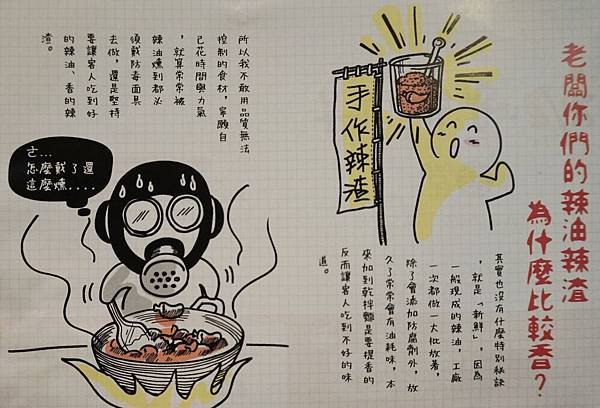 老闆你們的辣油辣渣
為什麼比較香？
手作辣渣
其實也沒有什麼特別秘訣
，就是「新鮮」，因為
一般現成的辣油，工廠
一次都做一大批放著，
除了會添加防腐劑外，放
久了常常會有油耗味，本
來加到乾拌麵是要提香的
反而讓客人吃到不好的味
道。
所以我不敢用品質無法
控制的食材，寧願自
己花時間與力氣
，就算常常被
辣油燻到都必
須戴防毒面具
去做，還是堅持
要讓客人吃到好
的辣油、香的辣
渣。
ㄜ...
怎麼戴了還
這麼燻....